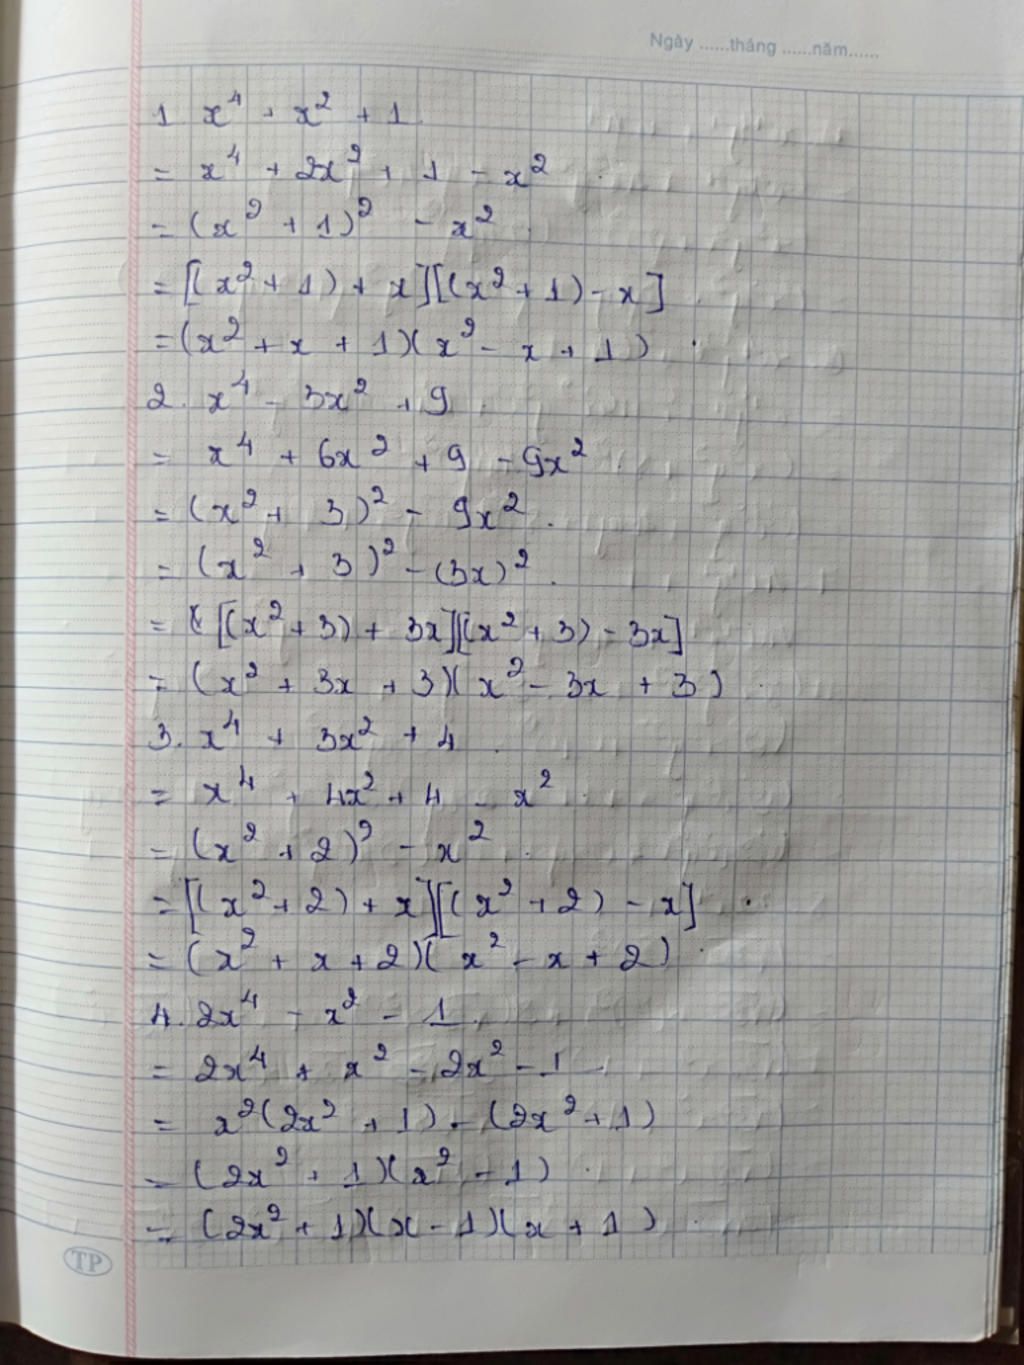 Ngày ......tháng ......năm......
1. x⁴ + x² + 1
= x⁴ + 2x² + 1 - x²
= (x² + 1)² - x²
= [(x² + 1) + x][(x² + 1) - x]
= (x² + x + 1)(x² - x + 1)
2. x⁴ - 3x² + 9
= x⁴ + 6x² + 9 - 9x²
= (x² + 3)² - 9x²
= (x² + 3)² - (3x)²
= [(x² + 3) + 3x][(x² + 3) - 3x]
= (x² + 3x + 3)(x² - 3x + 3)
3. x⁴ + 3x² + 4
= x⁴ + 4x² + 4 - x²
= (x² + 2)² - x²
= [(x² + 2) + x][(x² + 2) - x]
= (x² + x + 2)(x² - x + 2)
4. 2x⁴ - x² - 1
= 2x⁴ + x² - 2x² - 1
= x²(2x² + 1) - (2x² + 1)
= (2x² + 1)(x² - 1)
= (2x² + 1)(x - 1)(x + 1)
TP